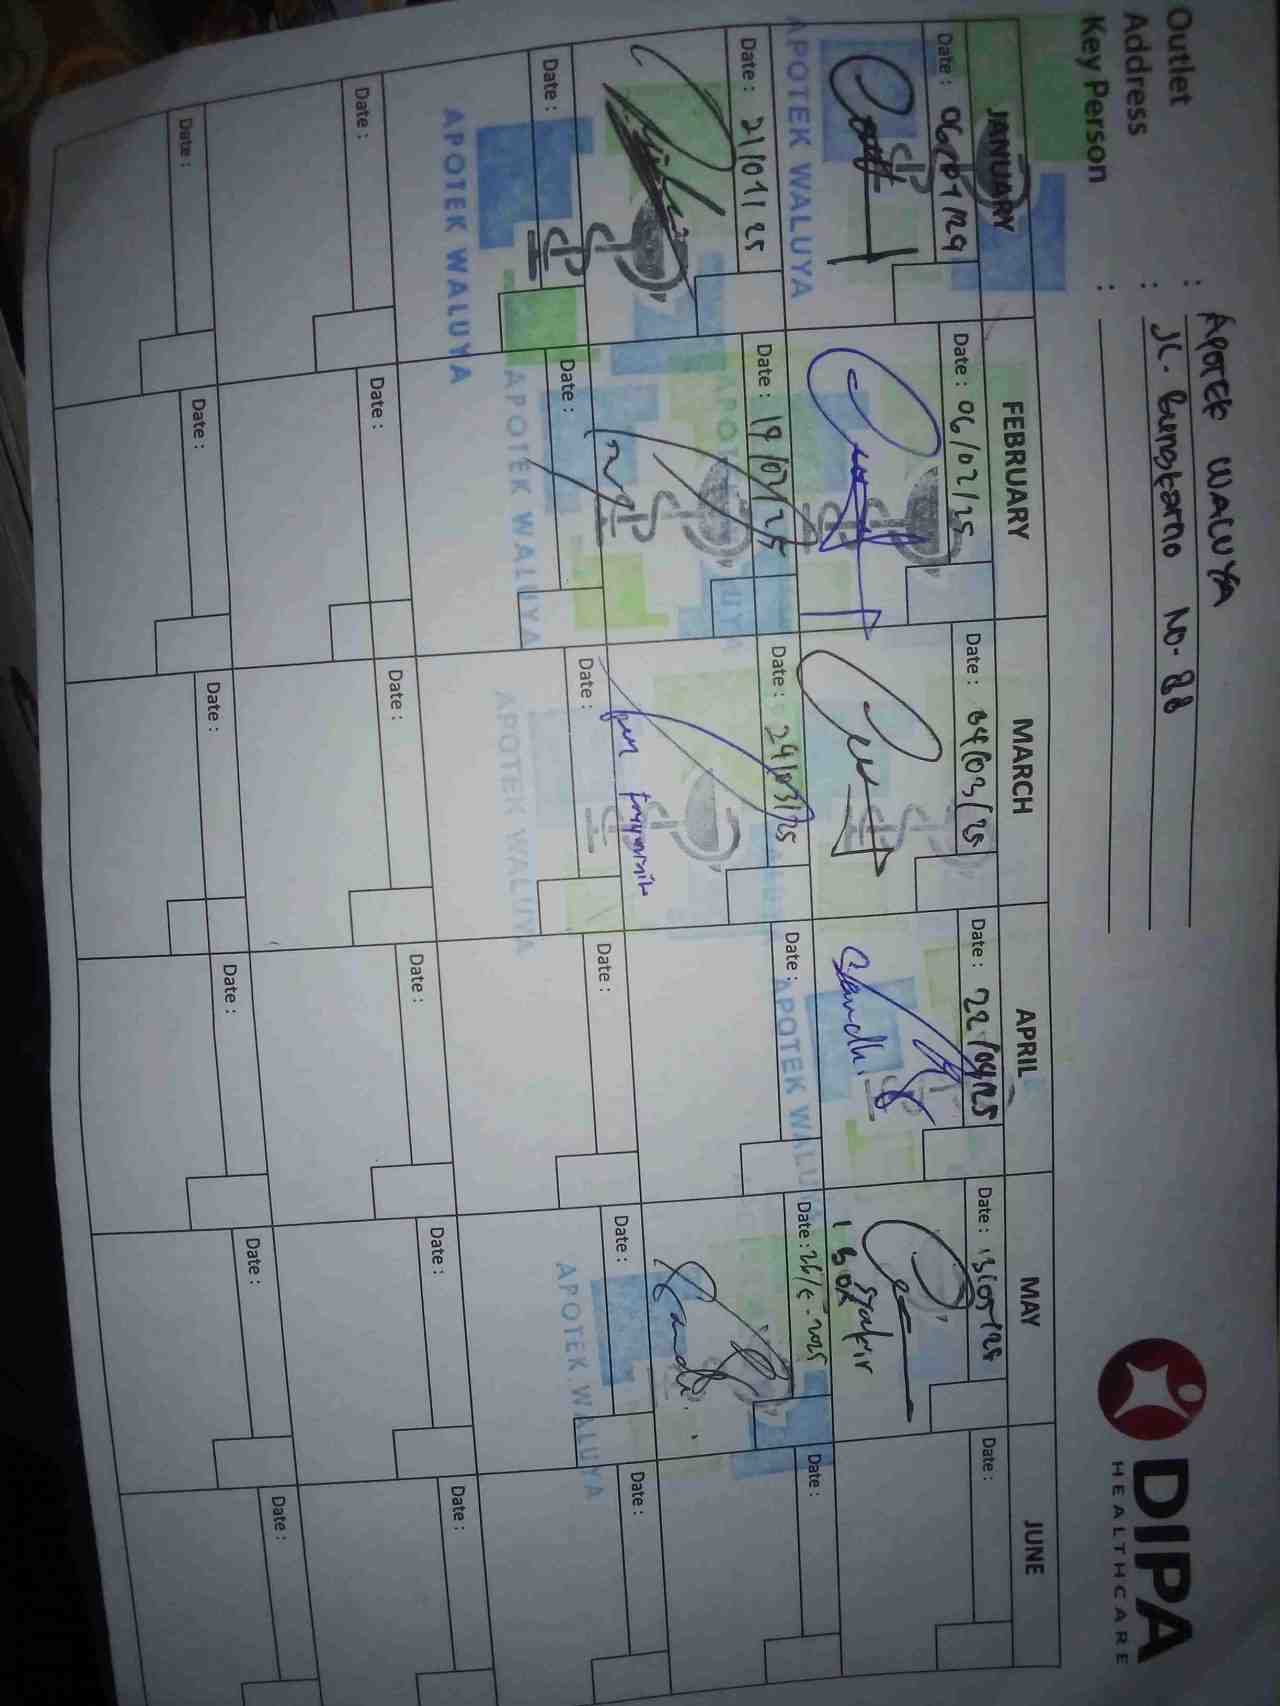 Outlet : APOTEK WALUYA
Address : JL. Bungtomo NO. 88
Key Person :
DIPA
HEALTHCARE
JANUARY FEBRUARY MARCH APRIL MAY JUNE
Date : 06/01/25 Date : 06/02/25 Date : 04/03/25 Date : 22/04/25 Date : 13/05/25 Date :
Sandhi
1 BOX
APOTEK WALUYA
Date : 21/01/25 Date : 19/02/25 Date : 24/03/25 Date : Date : 26/5-2025 Date :
APOTEK WALUYA APOTEK WALUYA
Sandhi
Date : Date : Date : Date : Date : Date :
APOTEK WALUYA APOTEK WALUYA APOTEK WALUYA APOTEK WALUYA
Date : Date : Date : Date : Date : Date :
Date : Date : Date : Date : Date : Date :